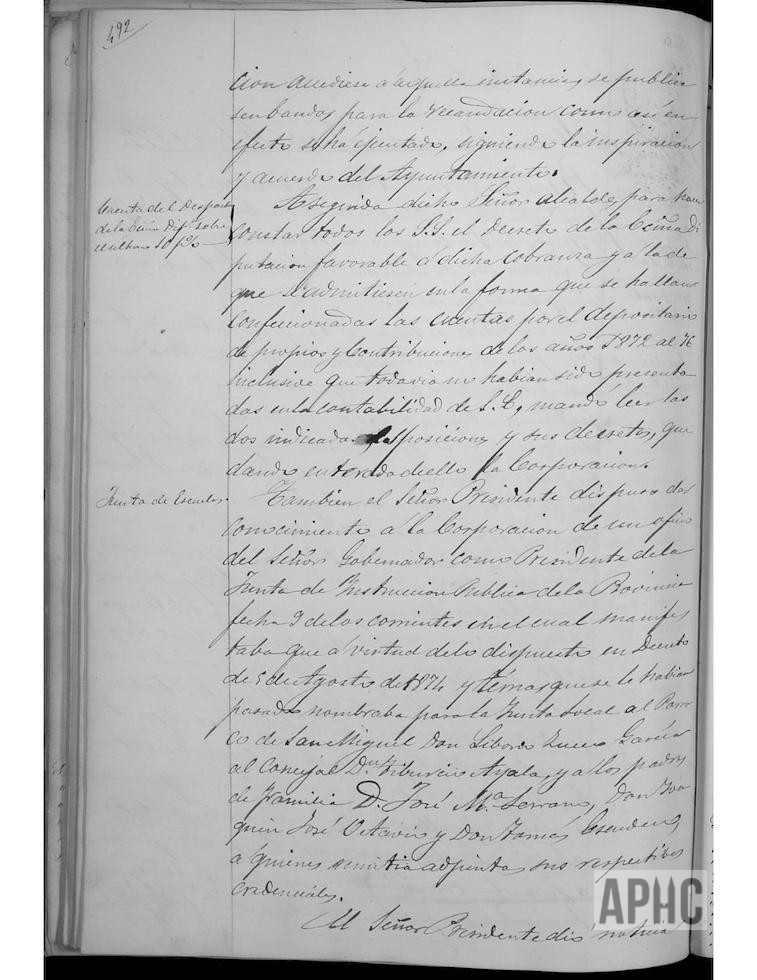 492
cion accediese a aquella instancia, se publica
sen bandos para la recaudacion como asi en
efecto se ha ejecutado, siguiendo la inspiracion
y acuerdo del Ayuntamiento.
Cuenta del Despacho
de la Exma Dipn sobre
A seguida dicho Señor Alcalde, para hacer
constar todos los S.S. el Decreto de la Exma Di
putacion favorable á dicha Cobranza y a la de
que se admitiesen en la forma que se hallan
confeccionadas las cuentas por el depositario
de propios y Contribuciones de los años 1872 al 76
inclusive que todavia no habian sido presenta
das en la contabilidad de S. E, mandó leer las
dos indicadas disposiciones y sus decretos, que
dando enterada de ello la Corporacion.
Junta de Escuelas.
Tambien el Señor Presidente dispuso dar
conocimiento á la Corporacion de un oficio
del Señor Gobernador como Presidente de la
Junta de Instruccion Publica de la Provincia
fecha 9 de los corrientes en el cual manifes
taba que á virtud de lo dispuesto en Decreto
de 5 de Agosto de 1874 y ternas que se le habian
pasado nombraba para la Junta local al Parro
co de San Miguel Don Liborio García
al Concejal Dn Tiburcio Ayala, y a los padres
de familia D. José Ma Serrano, Don Joa
quin José Octavio y Don Tomás
a quienes remitia adjuntas sus respectivas
credenciales.
El Señor Presidente dio noticia
APHC